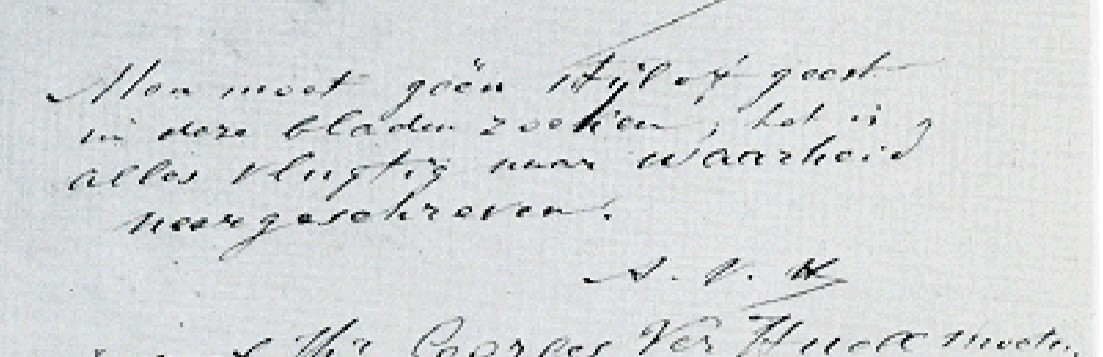 Men moet géén stijl of geest
in deze bladen zoeken, het is
alles vlugtig naar waarheid
neergeschreven.
A. V. H
Mr Georges Ver Huell moeten